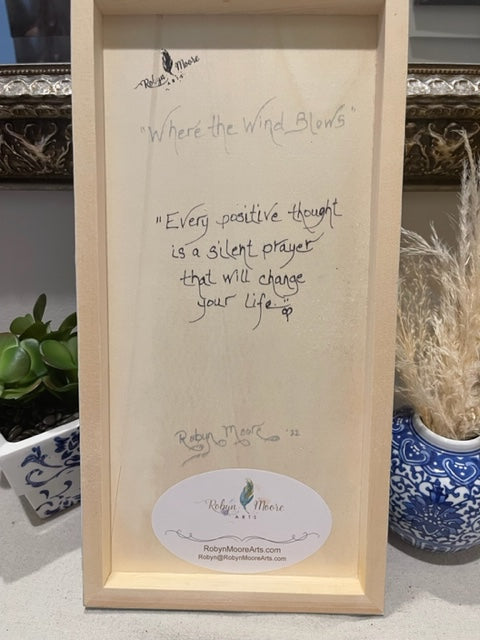 Robyn Moore
ARTS
"Where the Wind Blows"
"Every positive thought
is a silent prayer
that will change
your life."
Robyn Moore '22
Robyn Moore
ARTS
RobynMooreArts.com
Robyn@RobynMooreArts.com